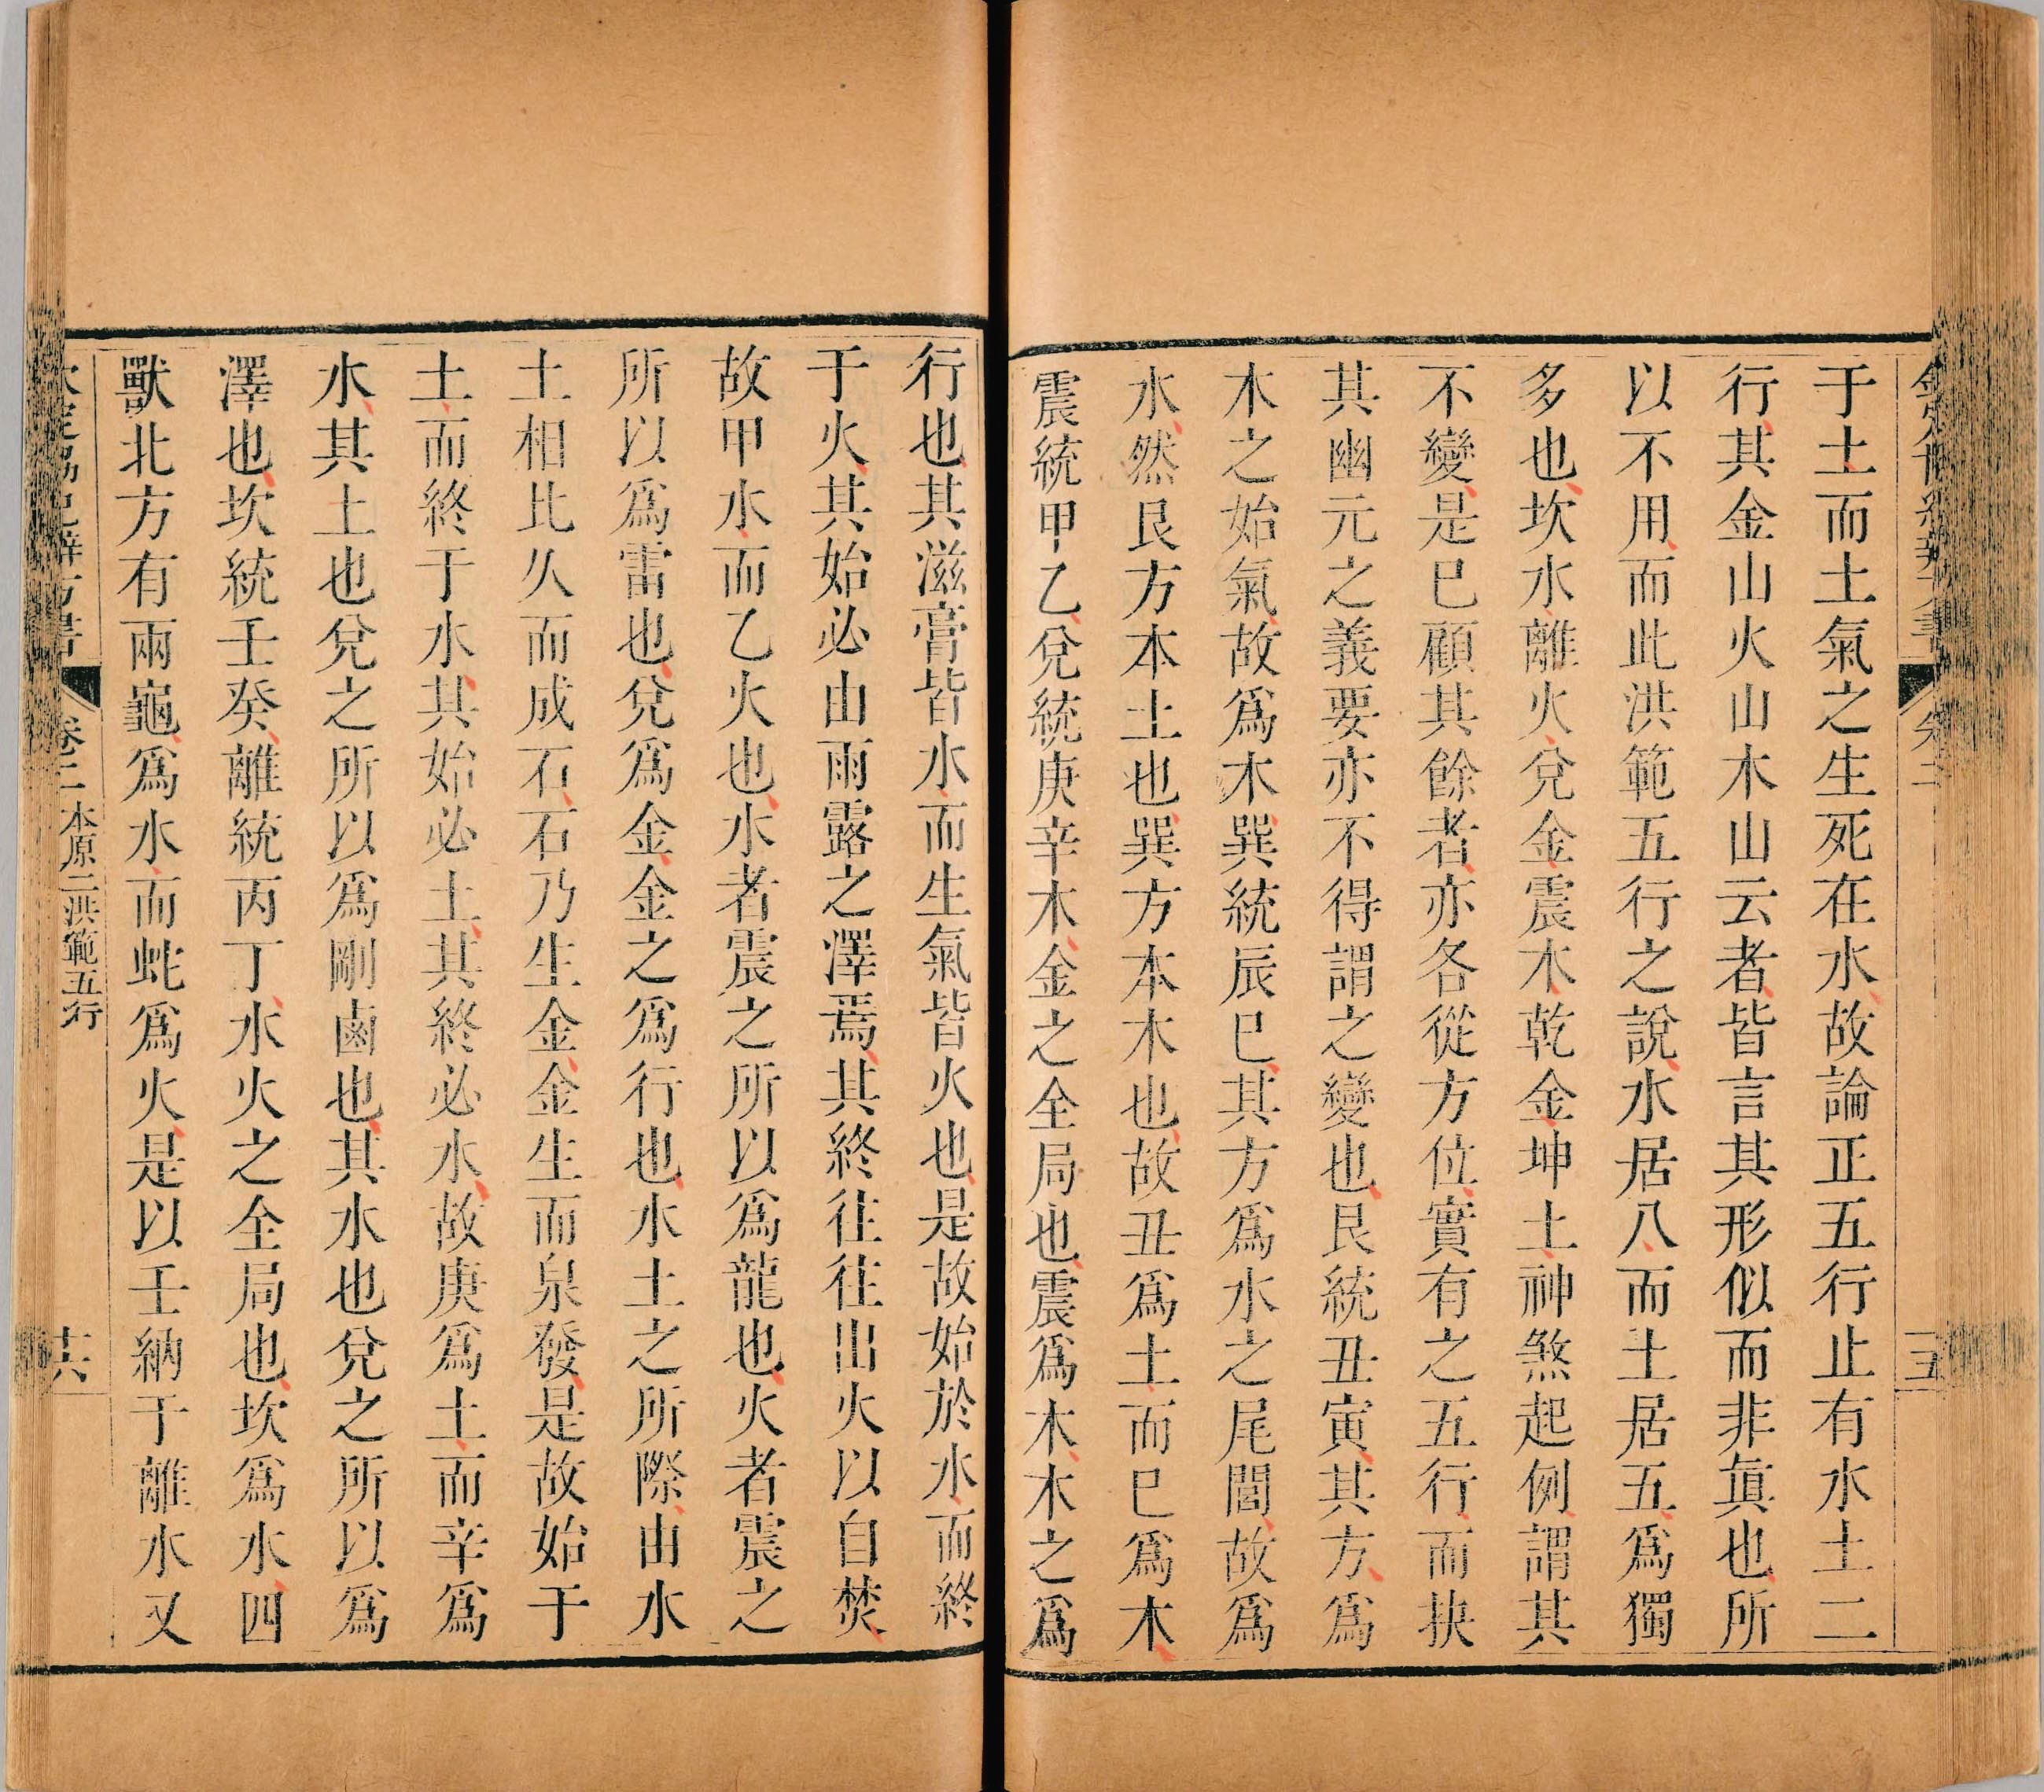 于土而土氣之生死在水故論正五行止有水土二
行其金山火山木山云者皆言其形似而非眞也所
以不用而此洪範五行之說水居八而土居五爲獨
多也坎水離火兌金震木乾金坤土神煞起例謂其
不變是已顧其餘者亦各從方位實有之五行而抉
其幽元之義要亦不得謂之變也艮統丑寅其方爲
木之始氣故爲木巽統辰巳其方爲水之尾閭故爲
水然艮方本土也巽方本木也故丑爲土而巳爲木
震統甲乙兌統庚辛木金之全局也震爲木木之爲
行也其滋膏皆水而生氣皆火也是故始於水而終
于火其始必由雨露之澤焉其終往往出火以自焚
故甲水而乙火也水者震之所以爲龍也火者震之
所以爲雷也兌爲金金之爲行也水土之所際由水
土相比久而成石石乃生金金生而泉發是故始于
土而終于水其始必土其終必水故庚爲土而辛爲
水其土也兌之所以爲剛鹵也其水也兌之所以爲
澤也坎統壬癸離統丙丁水火之全局也坎爲水四
獸北方有兩龜爲水而蛇爲火是以壬納于離水又
卷二 本原二洪範五行 十六